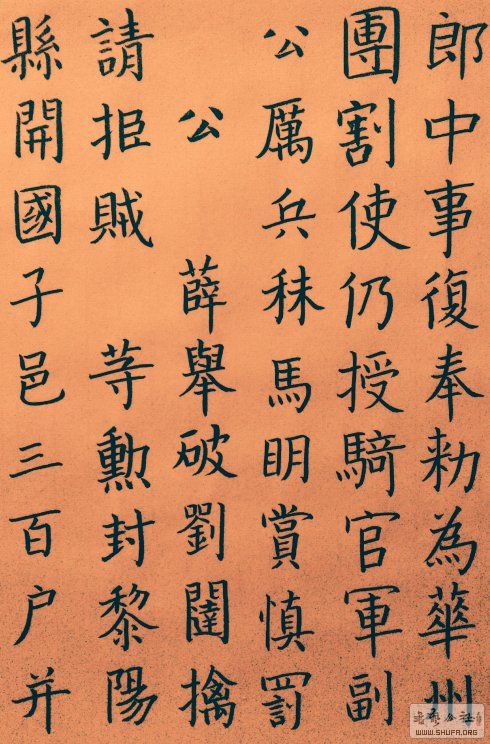 郎中事復奉勅為華州
團割使仍授騎官軍副
公厲兵秣馬眀賞慎罰
公 薛舉破劉闥擒
請拒賊 䓁勲封黎陽
縣開國子邑三百户并
WWW.SHUFA.ORG